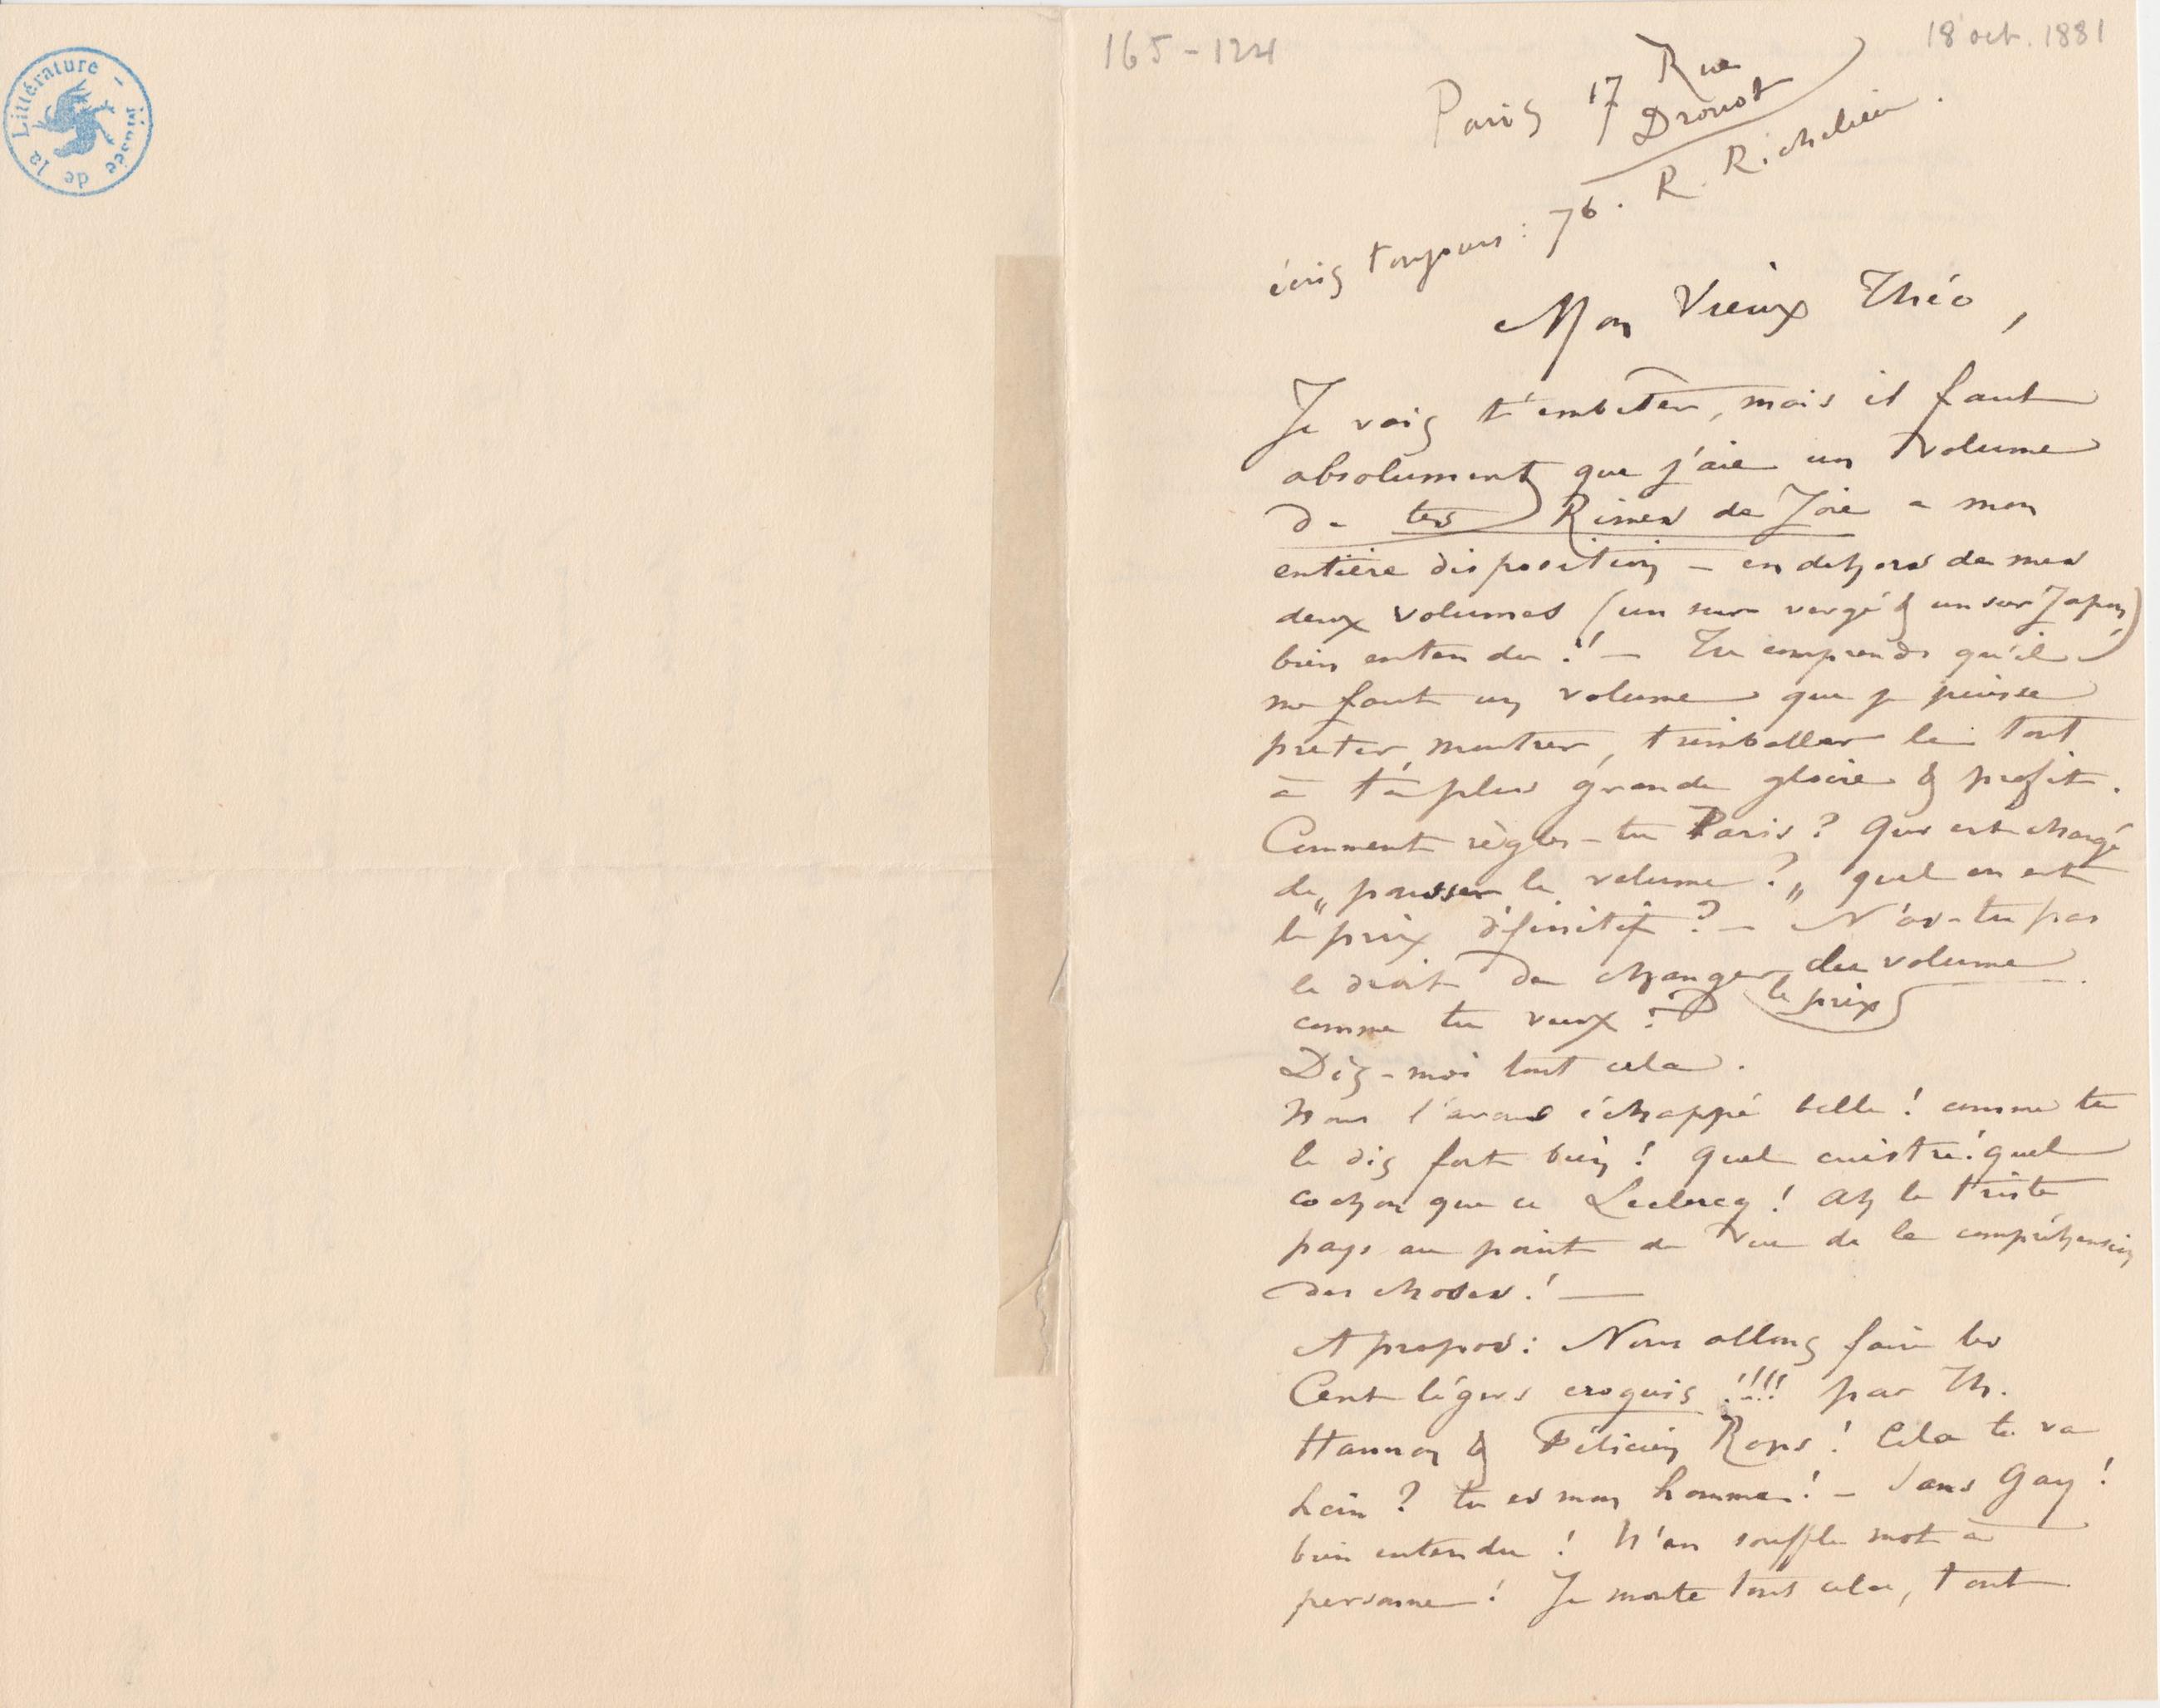 Musée de la Littérature -
165-124
18 oct. 1881
Paris 17 Rue
Drouot
écris toujours : 76. R. Richelieu.
Mon Vieux Théo,
Je vais t'embêter, mais il faut
absolument que j'aie un volume
de tes Rimes de Joie a mon
entière disposition – en dehors de mes
deux volumes (un sur vergé & un sur Japon)
bien entendu ! – Tu comprends qu'il
me faut un volume que je puisse
preter, montrer, trimballer le tout
à ta plus grande gloire & profit.
Comment règles-tu Paris ? Qui est chargé
de „pousser le volume ?„ quel en est
le prix définitif ? – N'as-tu pas
le droit de changer le prix du volume
comme tu veux ?
Dis-moi tout cela.
Nous l'avons échappé belle ! comme tu
le dis fort bien ! Quel cuistre ! quel
cochon que ce Leclercq ! Ah le triste
pays au point de vue de la compréhension
des choses ! —
A propos : Nous allons faire les
Cent légers croquis !!!! par Th.
Hannon & Félicien Rops ! Cela te va
hein ? tu es mon homme ! – Sans Gay !
bien entendu ! N'en souffle mot à
personne ! Je monte tout cela, tout